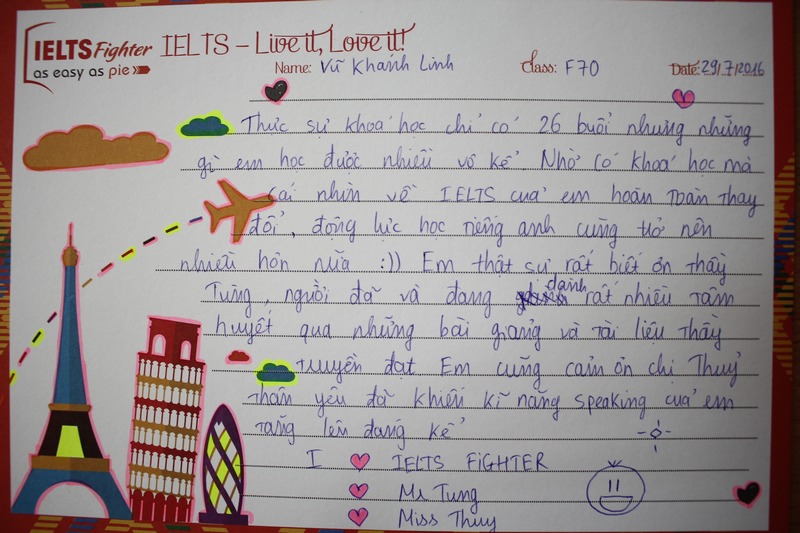 IELTS Fighter IELTS – Live it, Love it!
as easy as pie
Name: Vũ Khánh Linh Class: F70 Date: 29/7/2016
Thực sự khoá học chỉ có 26 buổi nhưng những
gì em học được nhiều vô kể. Nhờ có khoá học mà
cái nhìn về IELTS của em hoàn toàn thay
đổi, động lực học tiếng anh cũng trở nên
nhiều hơn nữa :)) Em thật sự rất biết ơn thầy
Tùng, người đã và đang dành rất nhiều tâm
huyết qua những bài giảng và tài liệu thầy
truyền đạt. Em cũng cảm ơn chị Thuỷ
thân yêu đã khiến kĩ năng speaking của em
tăng lên đáng kể
I ♥ IELTS FIGHTER
♥ Mr Tung
♥ Miss Thuy